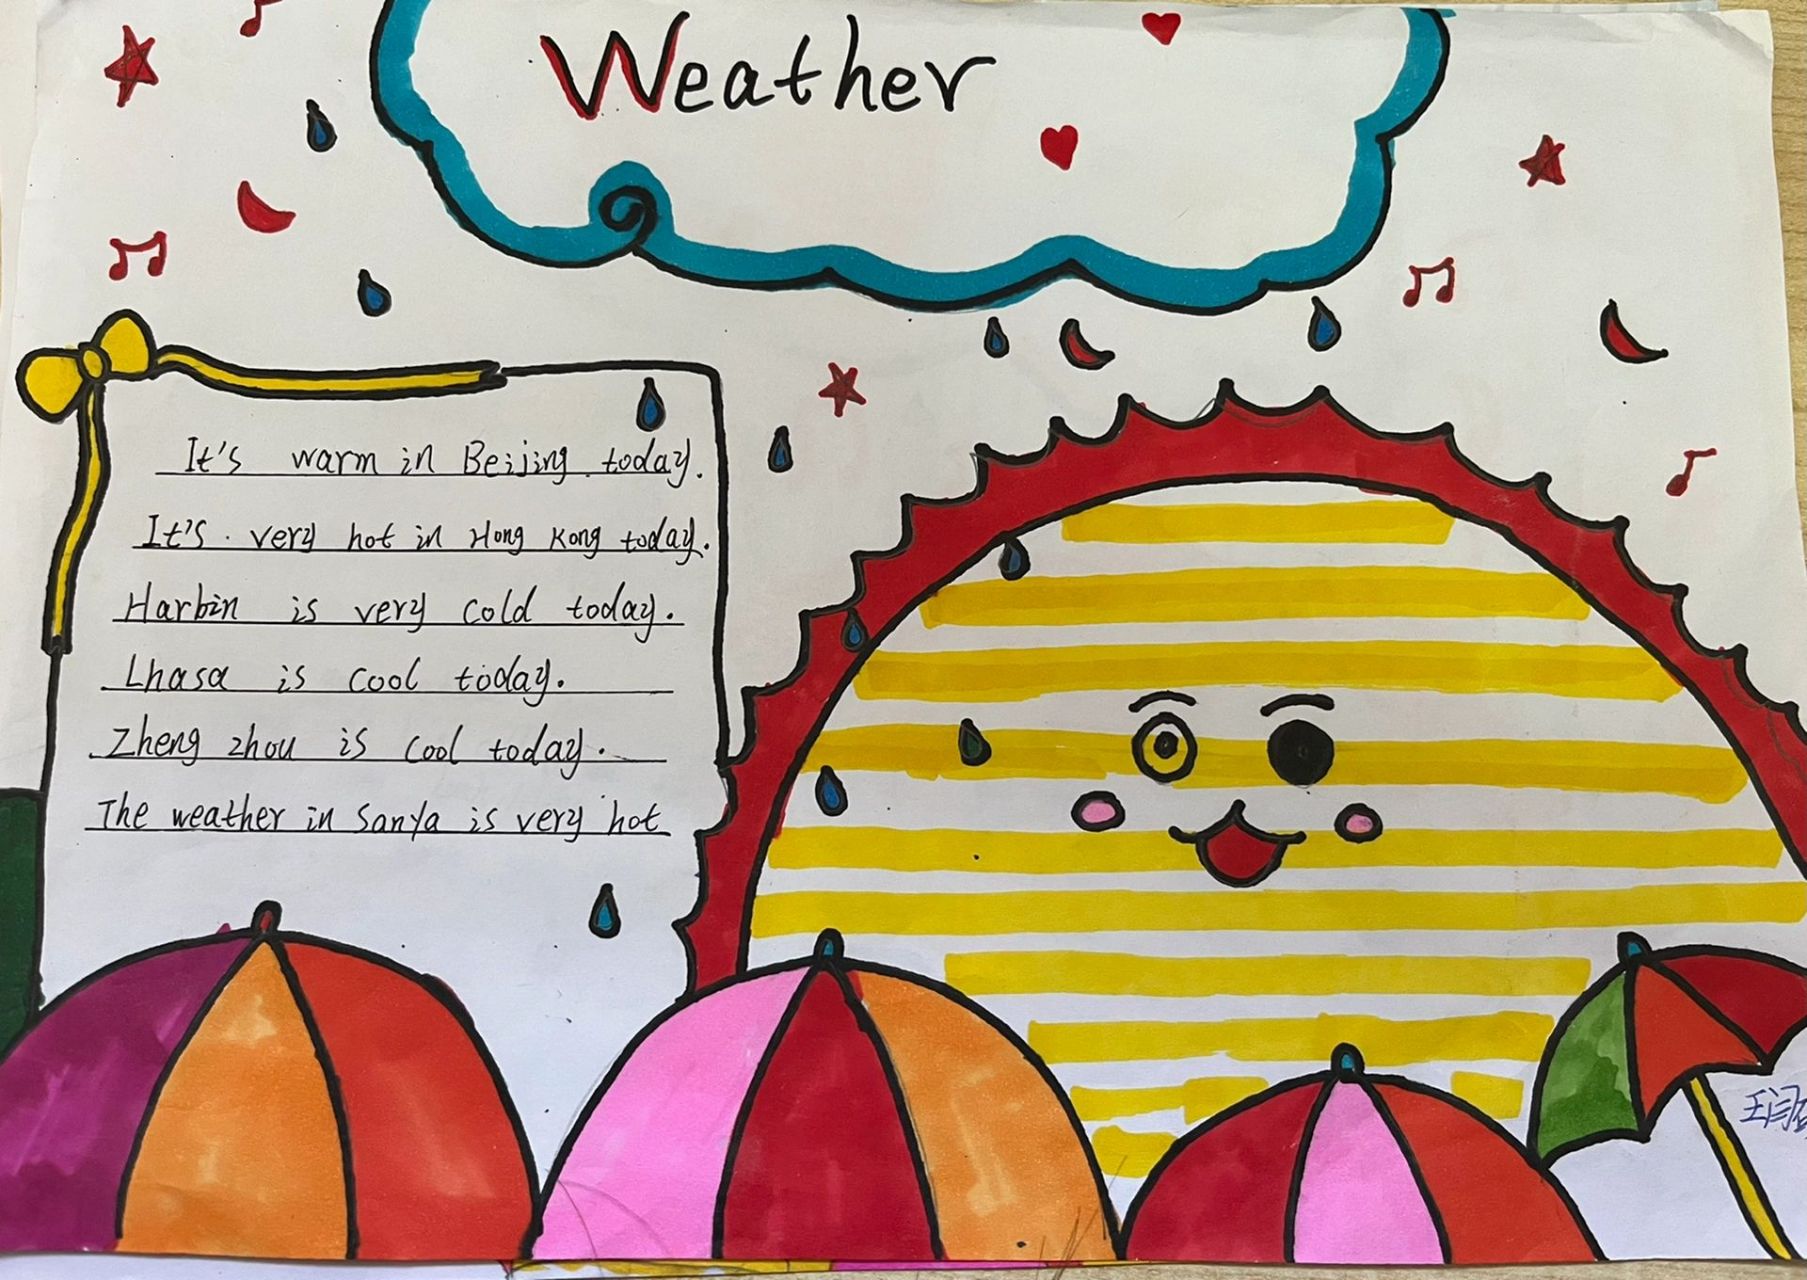 Weather
It's warm in Beijing today.
It's very hot in Hong Kong today.
Harbin is very cold today.
Lhasa is cool today.
Zheng zhou is cool today.
The weather in SanYa is very hot
王